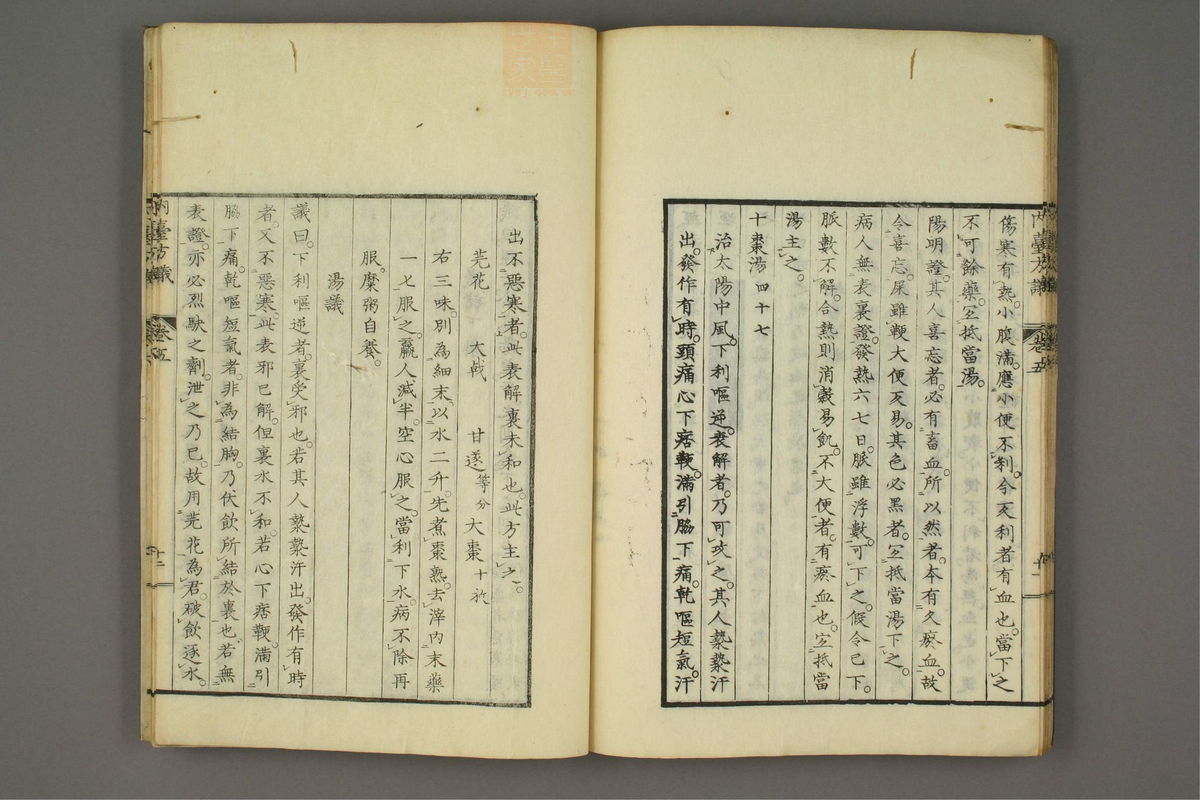 傷寒有熱。小腹滿。應小便不利。今反利者有血也。當下之
不可餘藥。宜抵當湯。
陽明證。其人喜忘者。必有畜血。所以然者。本有久瘀血。故
令喜忘。屎雖鞕大便反易。其色必黑者。宜抵當湯下之。
病人無表裏證。發熱六七日。脈雖浮數。可下之。假令已下。
脈數不解。合熱則消穀易飢。不大便者。有瘀血也。宜抵當
湯主之。
十棗湯 四十七
治太陽中風。下利嘔逆。表解者。乃可攻之。其人漐漐汗
出。發作有時。頭痛心下痞鞕。滿引脇下痛。乾嘔短氣。汗
內臺方議 卷五
出不惡寒者。此表解裏未和也。此方主之。
芫花 大戟 甘遂 等分 大棗 十枚
右三味。別為細末。以水二升。先煮棗熟。去滓內末藥
一七服之。羸人減半。空心服之。當利下水。病不除再
服。糜粥自養。
湯議
議曰。下利嘔逆者。裏受邪也。若其人漐漐汗出。發作有時
者。又不惡寒。此表邪已解。但裏水不和。若心下痞鞕。滿引
脇下痛。乾嘔短氣者。非為結胸。乃伏飲所結於裏也。若無
表證。亦必烈駃之劑。泄之乃已。故用芫花為君。破飲逐水。
內臺方議 卷五 十二